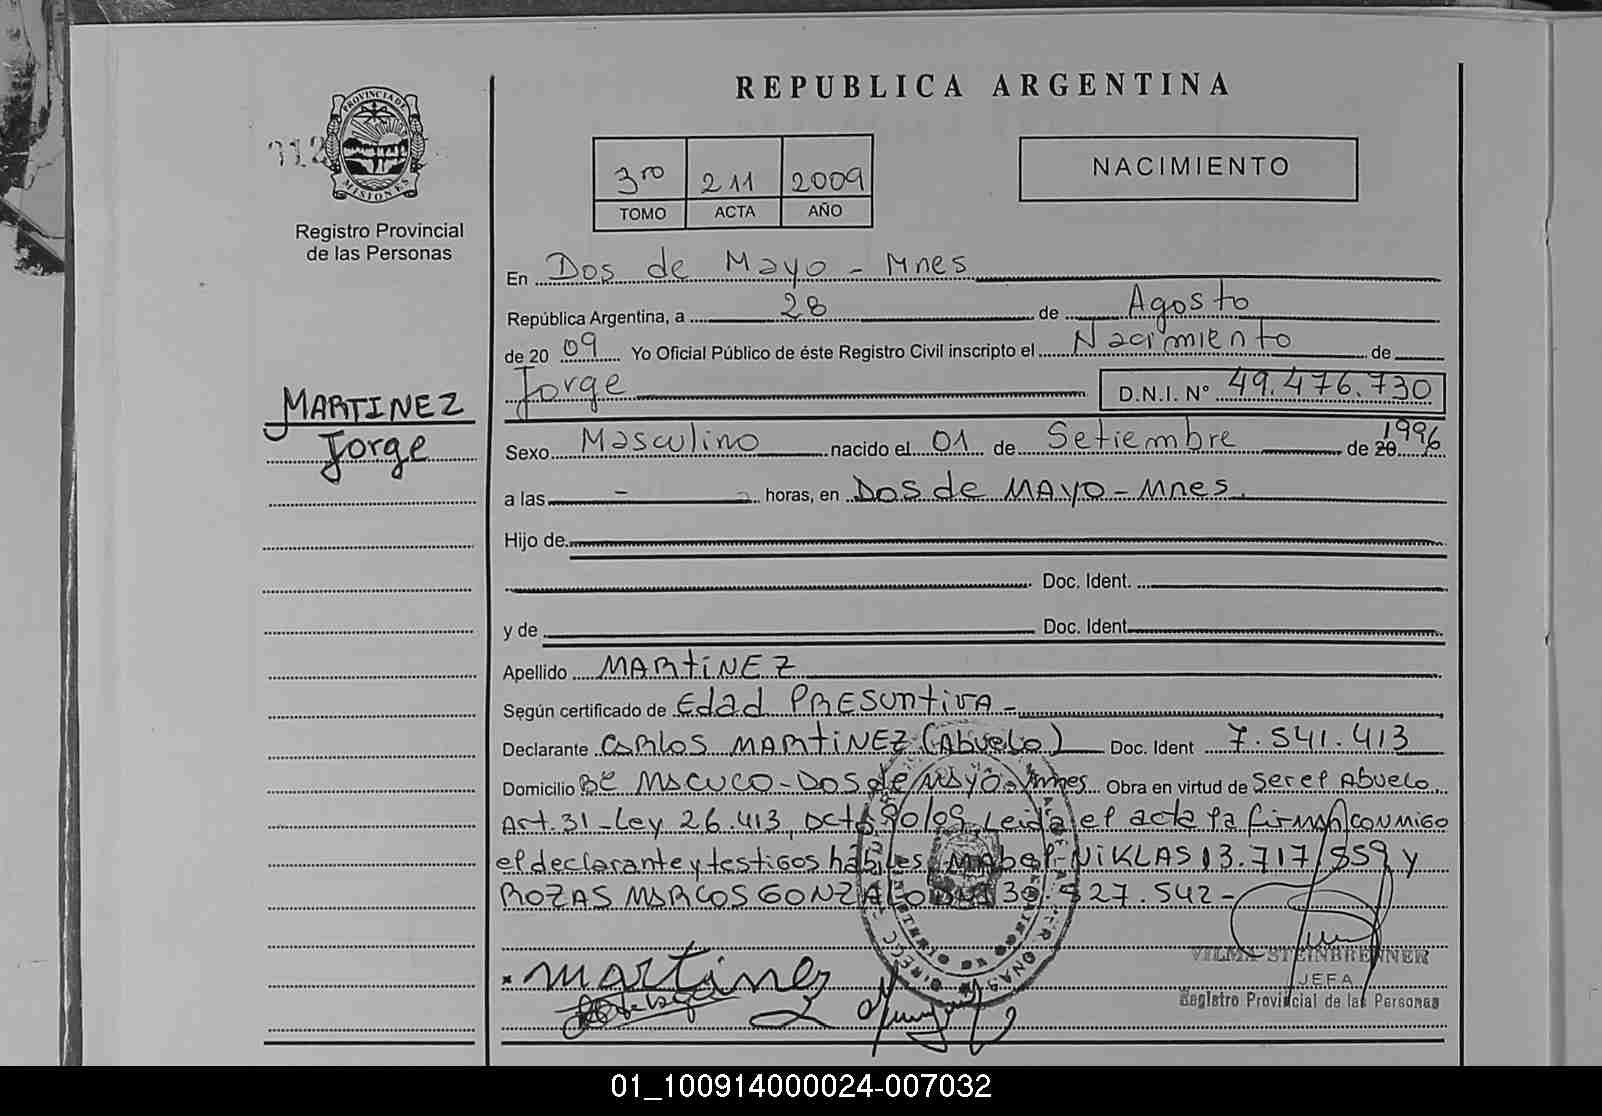 REPUBLICA ARGENTINA
PROVINCIA DE
MISIONES
Registro Provincial
de las Personas
3ro 211 2009
TOMO ACTA AÑO
NACIMIENTO
En Dos de Mayo - Mnes
República Argentina, a 28 de Agosto
de 20 09 Yo Oficial Público de éste Registro Civil inscripto el Nacimiento de
Jorge D.N.I. N° 49.476.730
MARTINEZ
Jorge
Sexo Masculino nacido el 01 de Setiembre de 20 1996
a las - horas, en Dos de MAYO - Mnes.
Hijo de
Doc. Ident.
y de Doc. Ident.
Apellido MARtiNEZ
Según certificado de Edad PRESUntivA -
Declarante CARlos MARtiNEZ (Abuelo) Doc. Ident 7.541.413
Domicilio Be MACUCO - Dos de MAYO - Mnes Obra en virtud de Ser el Abuelo.
Art. 31 - Ley 26.413, Dcto 90/09, Leida el acta la firman CONMIGO
el declarante y testigos hábiles MAbel NiKLAS 13.717.859 y
ROZAS MARCOS GONZALO DNI 30.527.542 -
martinez
VILMA STEINBRENNER
JEFA
Registro Provincial de las Personas
01_100914000024-007032